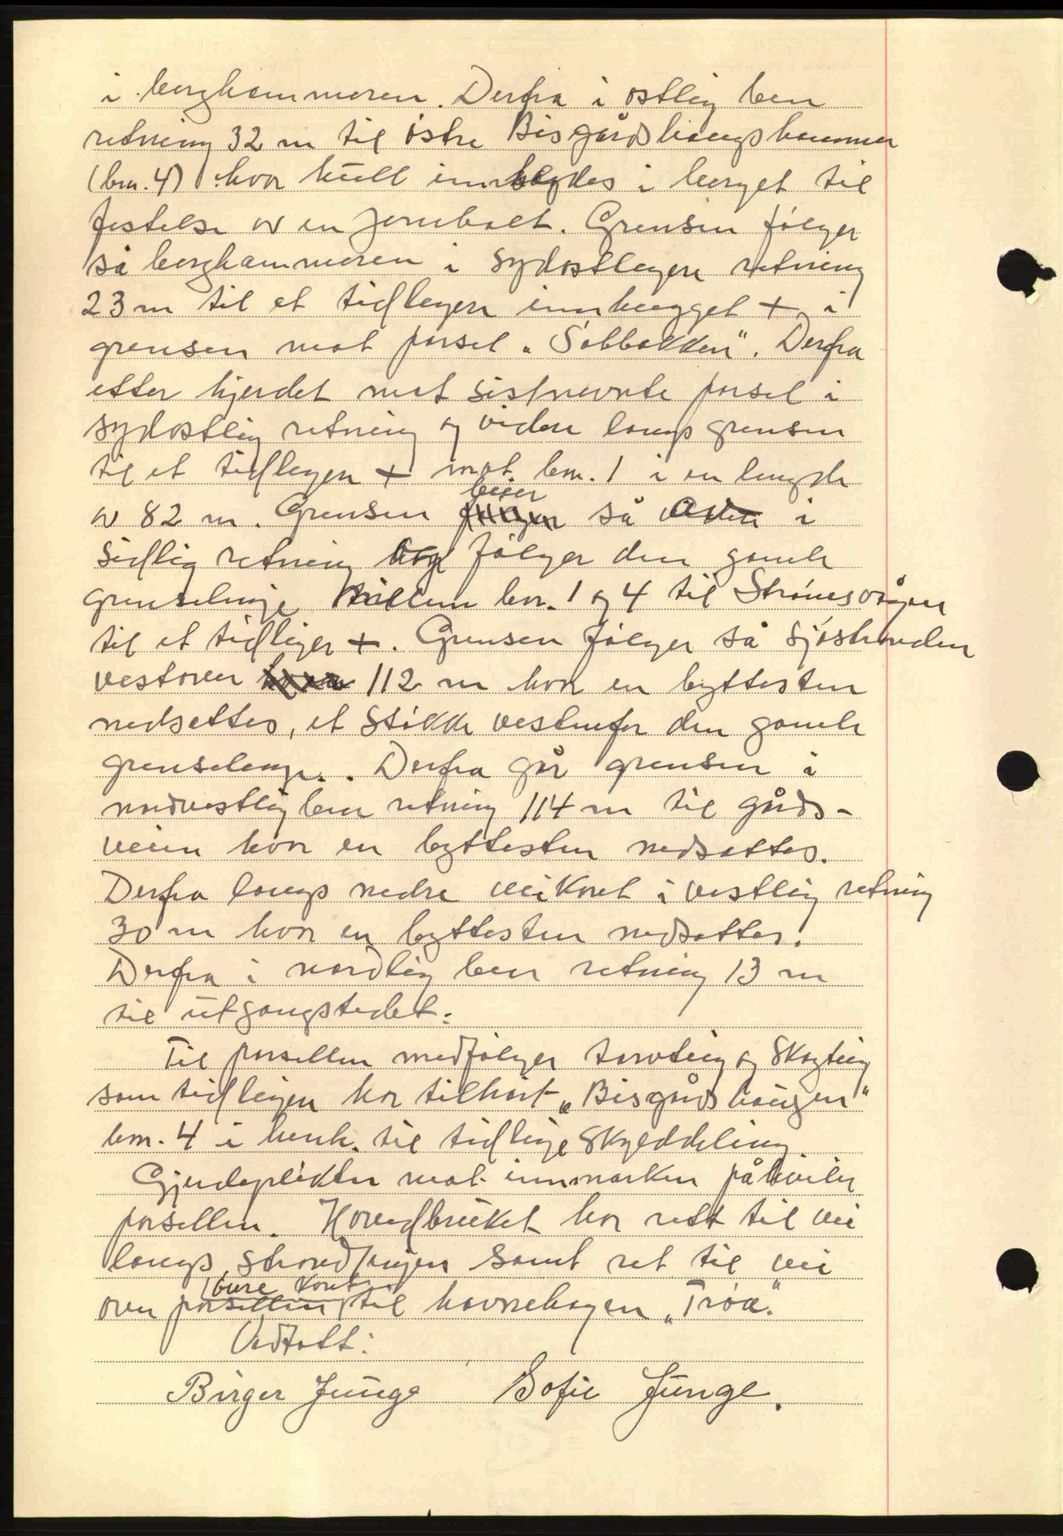 i berghammeren. Derfra i östlig ben
retning 32 m til östre Bisgårdshaugshammer
(brn. 4) hvor hull innhugges i berget til
festelse av en jernbolt. Grensen följer
så berghammeren i sydöstligere retning
23 m til et tidligere innhugget + i
grensen mot parsel „Solbakken". Derfra
etter gjerdet mot sistnevnte parsel i
sydöstlig retning og videre langs grensen
til et tidligere + mot brn. 1 i en lengde
av 82 m. Grensen böier så i
sydlig retning og følger den gamle
grenselinje mellem brn. 1 og 4 til Strömsvågen
til et tidliger +. Grensen følger så sjöstranden
vestover 112 m hvor en byttesten
nedsettes, et stykke vestenfor den gamle
grenselinje. Derfra går grensen i
nordvestlig ben retning 114 m til gårds-
veien hvor en byttesten nedsettes.
Derfra langs nedre veikant i vestlig retning
30 m hvor en byttesten nedsettes.
Derfra i nordlig ben retning 13 m
til utgangstedet.
Til parsellen medfölger torvteig og skogteig
som tidligere har tilhört „Bisgårdshaugen"
brn. 4 i henh. til tidlige skylddeling
Gjerdeplikten mot innmarken påhviler
parsellen. Hovedbruket har rett til vei
langs strandkanten samt ret til vei
over parsellens övre kant til havnehagen „Tröa".
Vedtatt:
Birger Junge Sofie Junge.